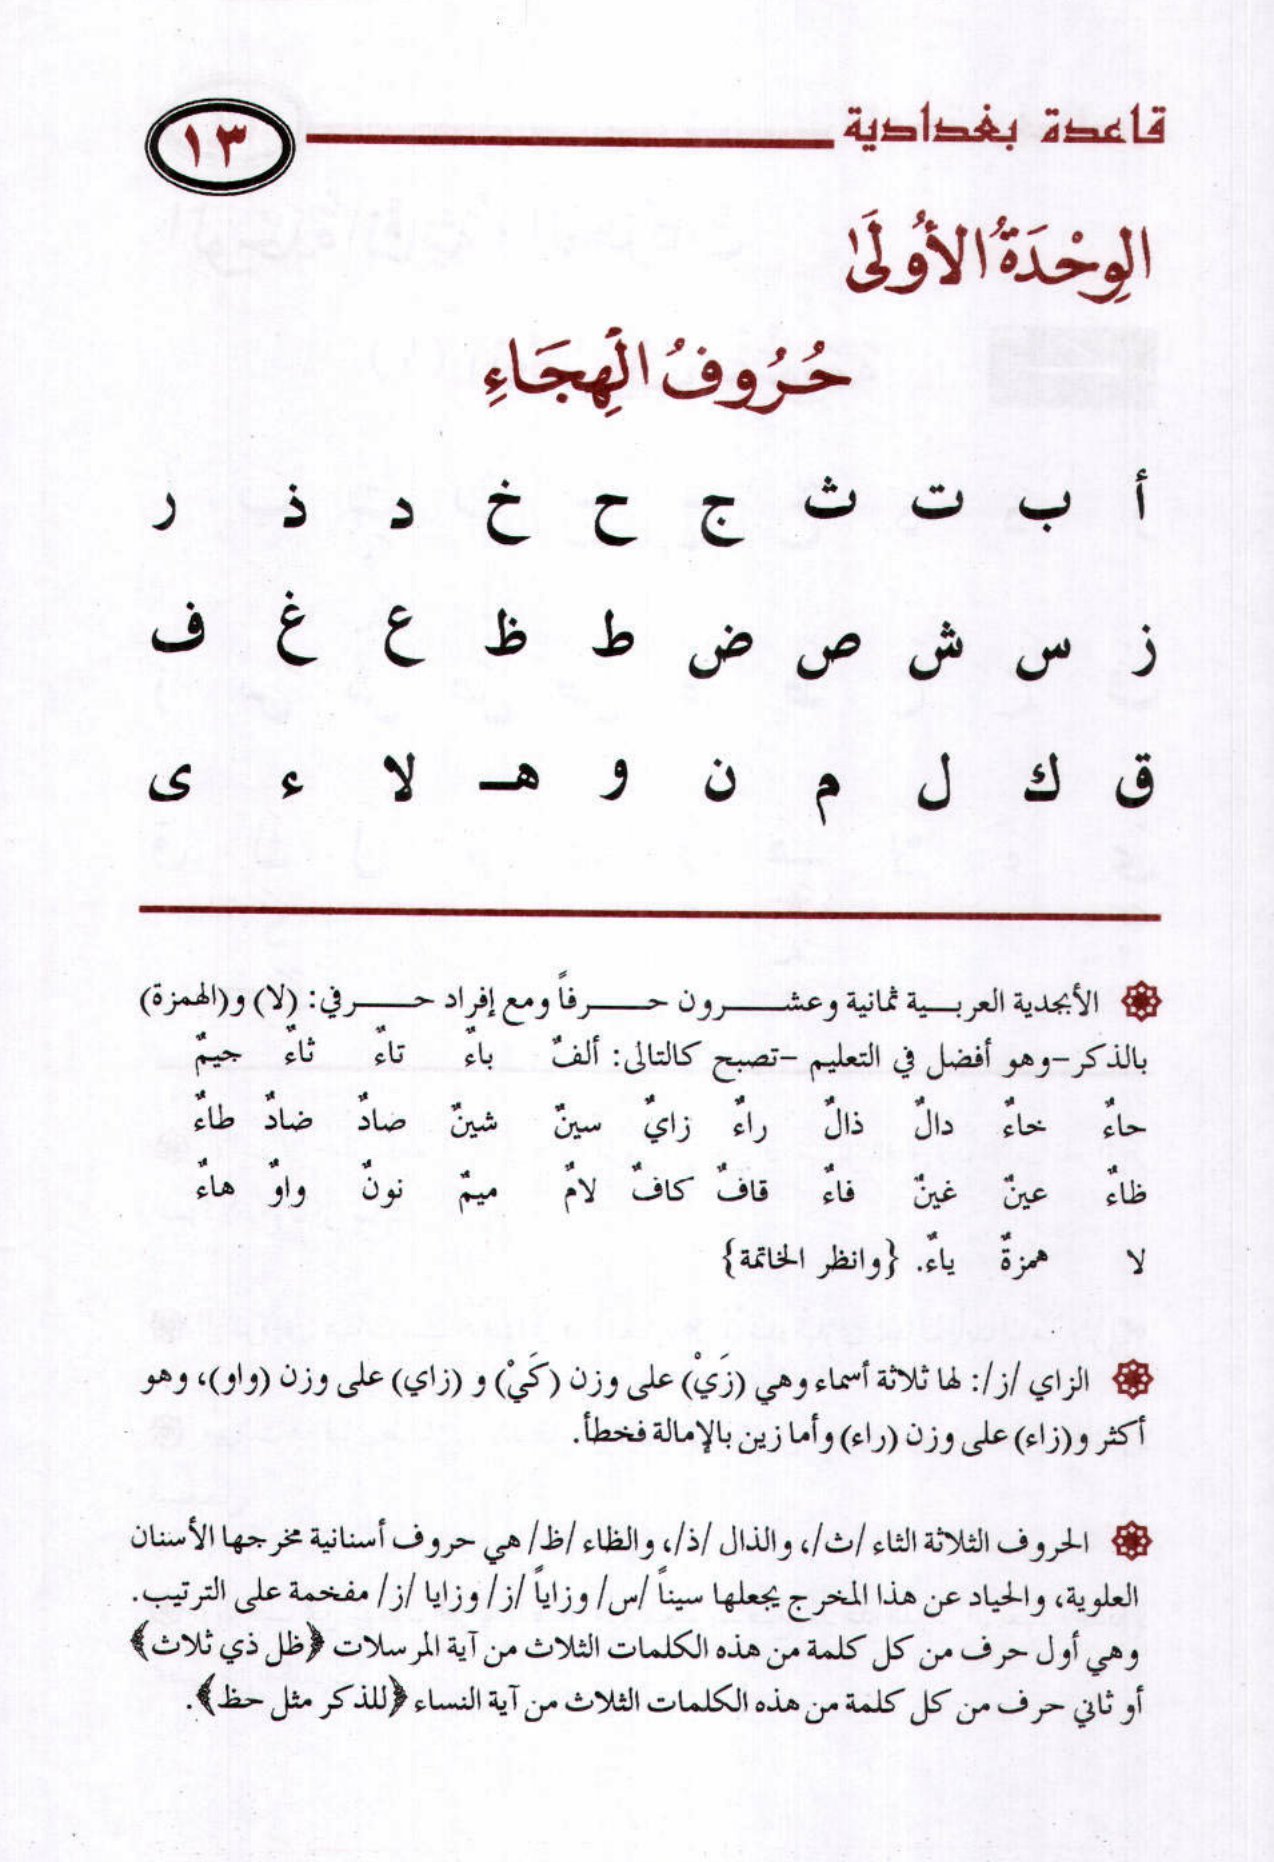 قاعدة بغدادية
١٣
الوِحْدَةُ الأُولَىٰ
حُرُوفُ الْهِجَاءِ
أ ب ت ث ج ح خ د ذ ر
ز س ش ص ض ط ظ ع غ ف
ق ك ل م ن و هـ لا ء ى
الأبجدية العربـــية ثمانية وعشـــــرون حـــــرفاً ومع إفراد حـــــرفي: (لا) و(الهمزة)
بالذكر–وهو أفضل في التعليم –تصبح كالتالى: ألفٌ باءٌ تاءٌ ثاءٌ جيمٌ
حاءٌ خاءٌ دالٌ ذالٌ راءٌ زايٌ سينٌ شينٌ صادٌ ضادٌ طاءٌ
ظاءٌ عينٌ غينٌ فاءٌ قافٌ كافٌ لامٌ ميمٌ نونٌ واوٌ هاءٌ
لا همزةٌ ياءٌ. {وانظر الخاتمة}
الزاي /ز/: لها ثلاثة أسماء وهي (زَيْ) على وزن (كَيْ) و (زاي) على وزن (واو)، وهو
أكثر و(زاء) على وزن (راء) وأما زين بالإمالة فخطأ.
الحروف الثلاثة الثاء /ث/، والذال /ذ/، والظاء /ظ/ هي حروف أسنانية مخرجها الأسنان
العلوية، والحياد عن هذا المخرج يجعلها سيناً /س/ وزاياً /ز/ وزايا /ز/ مفخمة على الترتيب.
وهي أول حرف من كل كلمة من هذه الكلمات الثلاث من آية المرسلات ﴿ظل ذي ثلاث﴾
أو ثاني حرف من كل كلمة من هذه الكلمات الثلاث من آية النساء ﴿للذكر مثل حظ﴾.